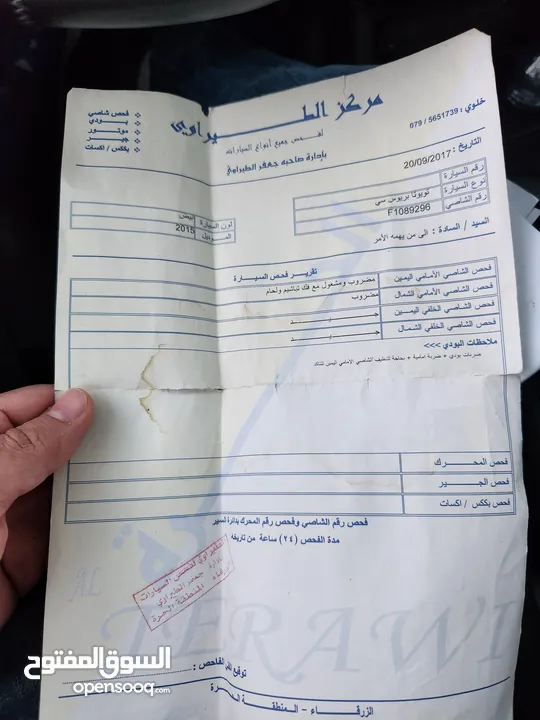 مركز الطيراوي
لفحص جميع أنواع السيارات
بإدارة صاحبه جعفر الطيراوي
فحص شاصي
بودي
موتور
جير
بككس / اكسات
خلوي : 5651739 / 079
التاريخ : 20/09/2017
رقم السيارة
نوع السيارة تويوتا بريوس سي
رقم الشاصي F1089296
لون السيارة ابيض
الموديل 2015
السيد / السادة : الى من يهمه الأمر
تقرير فحص السيارة
فحص الشاصي الأمامي اليمين مضروب ومشغول مع فك تباشيم ولحام
فحص الشاصي الأمامي الشمال مضروب
فحص الشاصي الخلفي اليمين جيد
فحص الشاصي الخلفي الشمال جيد
ملاحظات البودي >>>
ضربات بودي + ضربة امامية + بحاجة لتنظيف الشاصي الامامي اليمين للتاكد
فحص المحرك
فحص الجير
فحص بككس / اكسات
فحص رقم الشاصي وفحص رقم المحرك بدائرة السير
مدة الفحص (٢٤) ساعة من تاريخه
الطيراوي لفحص السيارات
ادارة جعفر الطيراوي
الزرقاء المنطقة الحرة
AL TERAWI
توقيع الفاحص :
الزرقاء - المنطقة الحرة
السوق المفتوح
opensooq.com